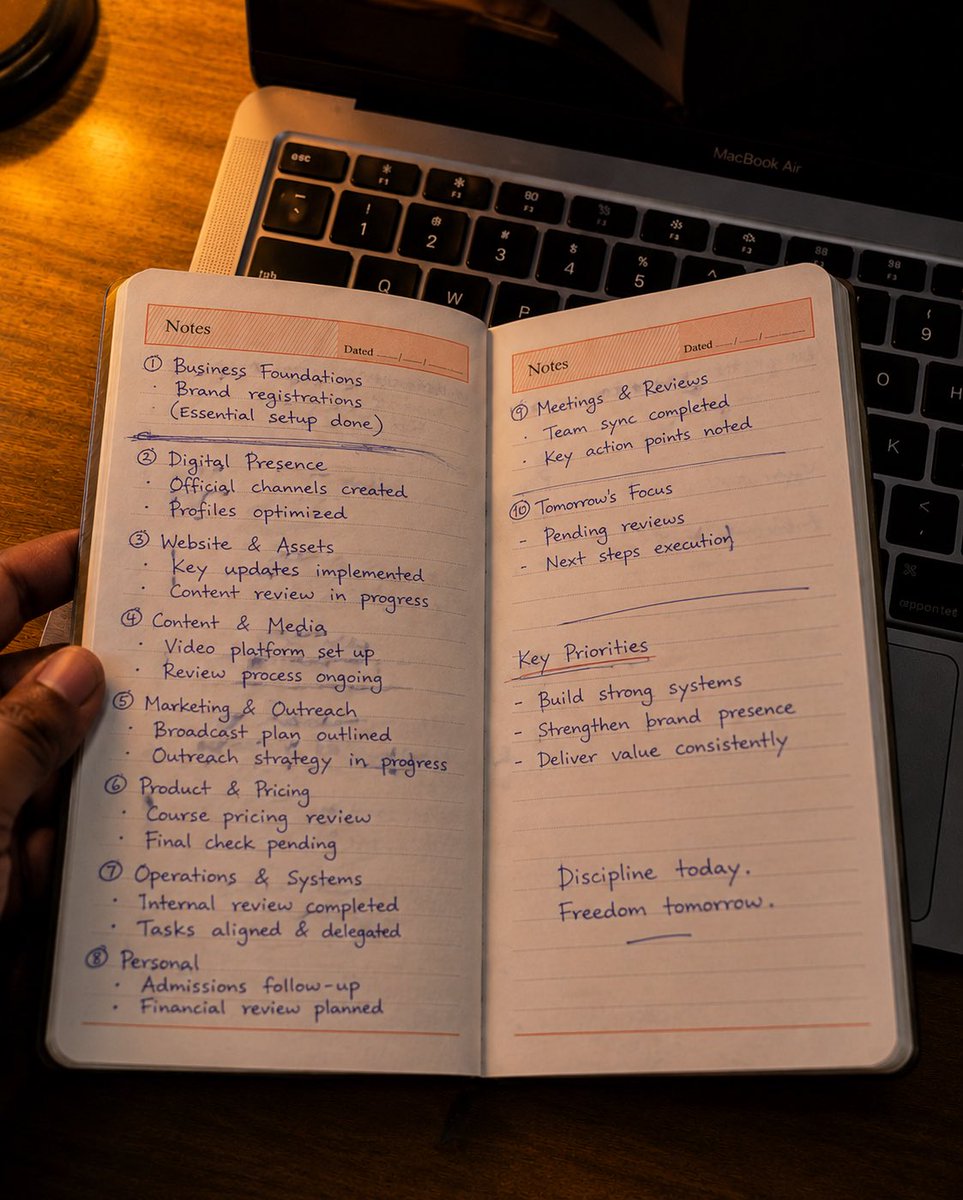 MacBook Air
esc
F1
F3
80
F3
F3
F3
F3
88
F3
98
F3
!
1
2
*
3
$
4
%
5
^
{
9
Q
W
O
H
K
<
,
⌘
Notes
Dated ___/___/___
① Business Foundations
· Brand registrations
· (Essential setup done)
② Digital Presence
· Official channels created
· Profiles optimized
③ Website & Assets
· Key updates implemented
· Content review in progress
④ Content & Media
· Video platform set up
· Review process ongoing
⑤ Marketing & Outreach
· Broadcast plan outlined
· Outreach strategy in progress
⑥ Product & Pricing
· Course pricing review
· Final check pending
⑦ Operations & Systems
· Internal review completed
· Tasks aligned & delegated
⑧ Personal
· Admissions follow-up
· Financial review planned
Notes
Dated ___/___/___
⑨ Meetings & Reviews
· Team sync completed
· Key action points noted
⑩ Tomorrow's Focus
- Pending reviews
- Next steps execution
Key Priorities
- Build strong systems
- Strengthen brand presence
- Deliver value consistently
Discipline today.
Freedom tomorrow.